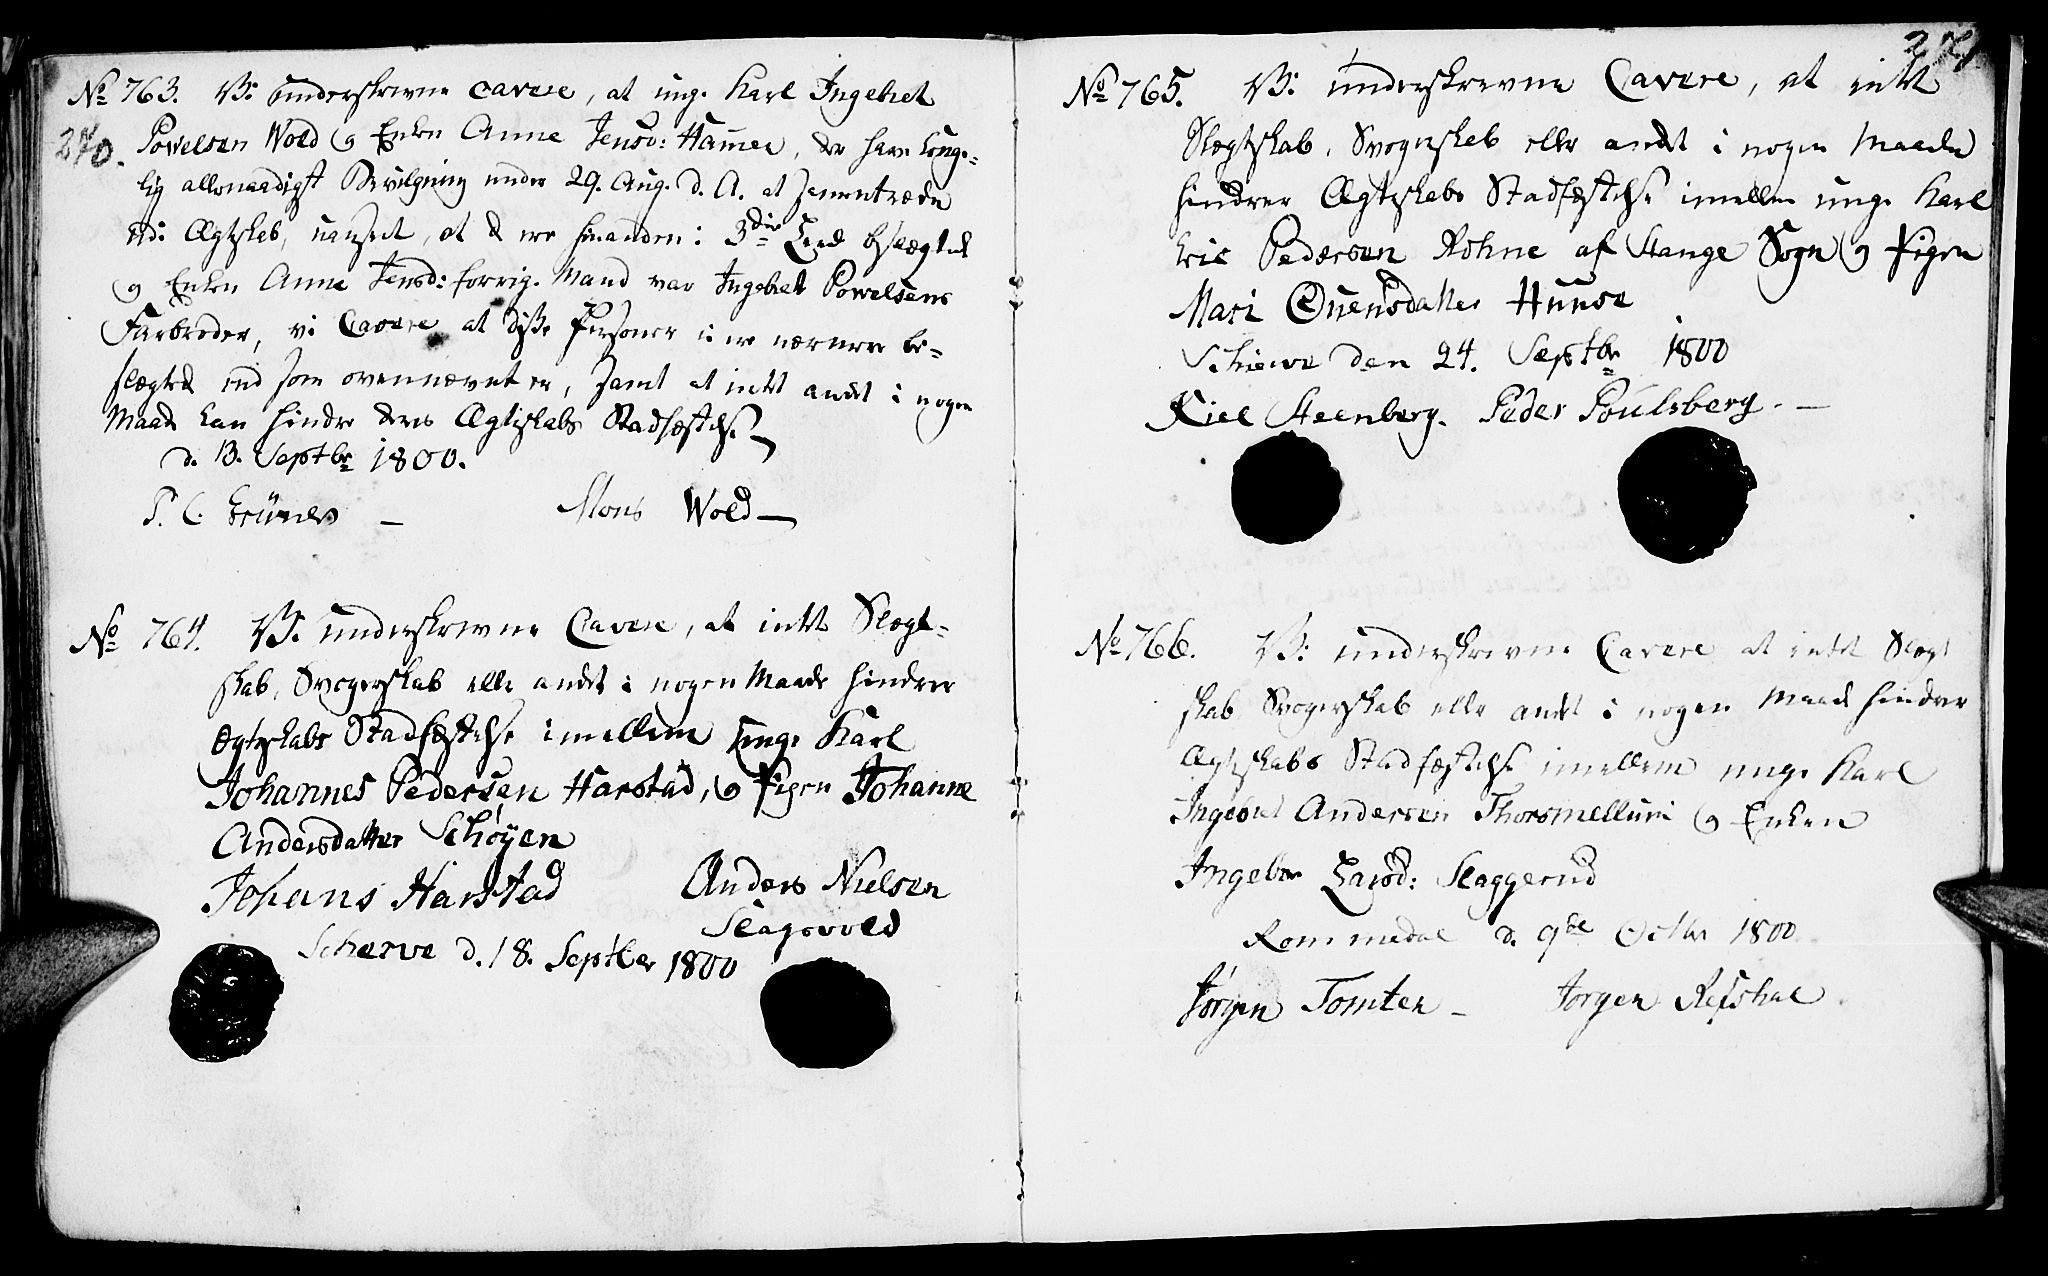 No 763. Vi underskrevne cavere, at unge Karl Ingebret
270. Powelsen Wold og Enken Anne Jensd: Hamer, der have Konge-
lig allernaadigst Bevilgning under 29. Aug. d. A. at sammentræde
udi Ægtskab, uanseet, at de ere hinanden i 3die Leed beslægtet
og Enken Anne Jensd: forrige Mand var Ingebret Powelsens
Farbroder, vi Cavere at disse Personer ei ere nærmere be-
slægtet end som ovennævnt er, samt at intet andet i nogen
Maade kan hindre deres Ægteskabs Stadfæstelse
d. 13. Septbr 1800.
P. C. Grüner — Mons Wold —
No 764. Vi underskrevne Cavere, at intet Slægt-
skab, Svogerskab eller andet i nogen Maade hindrer
Ægteskabs Stadfæstelse imellem unge Karl
Johannes Pedersen Harstad, og Pigen Johanne
Andersdatter Schøyen
Johans Harstad Anders Nielsen
Slagsvold
Scherve d. 18. Septber 1800
271
No 765. Vi underskrevne Cavere, at intet
Slægtskab, Svogerskab eller andet i nogen Maade
hindrer Ægteskabs Stadfæstelse imellem unge Karl
Eric Pedersen Rohne af Stange Sogn og Pigen
Mari Evensdatter Hunse
Schierve den 24. Septbr 1800
Kiel Steenberg. Peder Poulsberg. —
No 766. Vi underskrevne Cavere at intet Slægt
skab Svogerskab eller andet i nogen Maade hindrer
Ægteskabs Stadfæstelse imellem unge Karl
Ingebret Andersen Thorsmellum og Enken
Ingebor Larsd: Slaggerud
Rommedal d. 9de Octbr 1800.
Jørgen Tomter — Jorgen Refshal